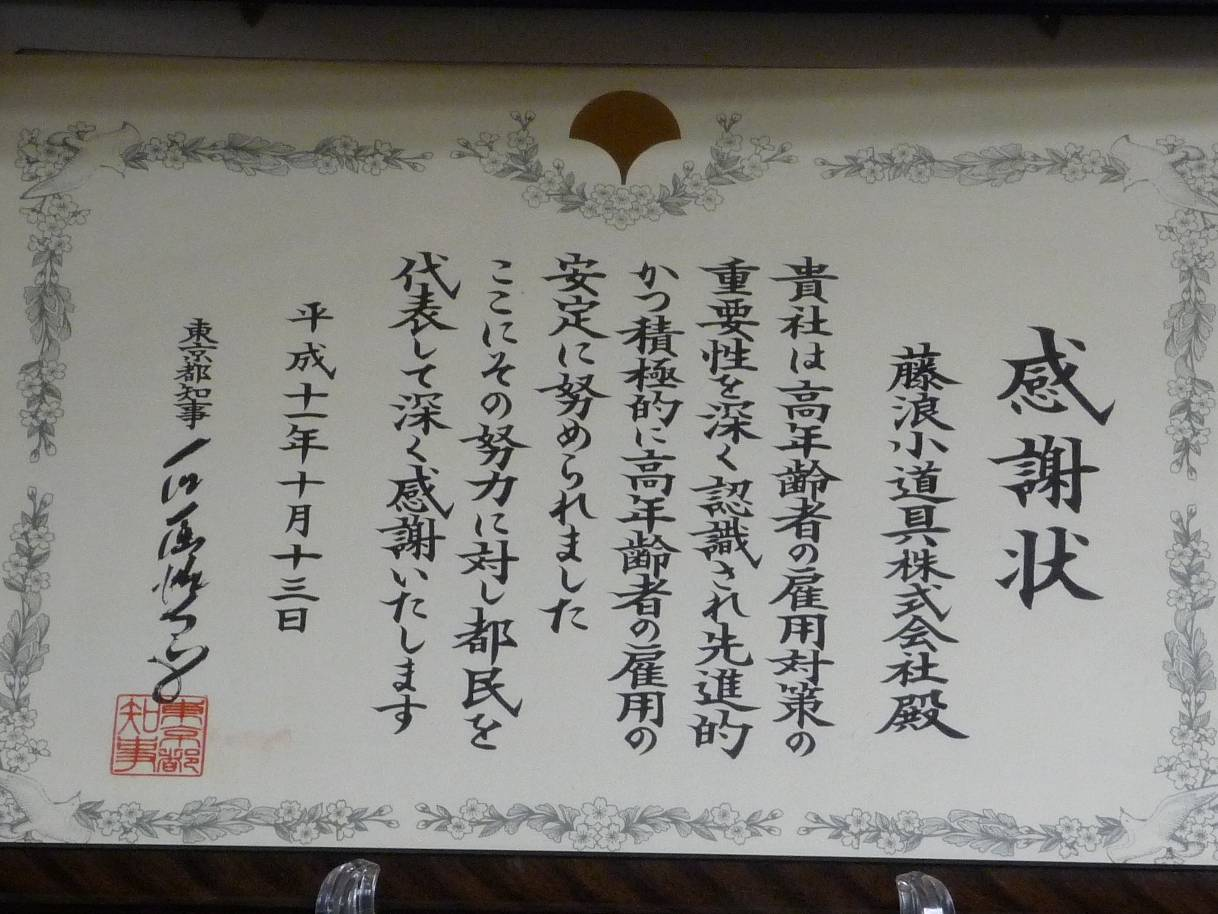 感謝状
藤浪小道具株式会社殿
貴社は高年齢者の雇用対策の
重要性を深く認識され先進的
かつ積極的に高年齢者の雇用の
安定に努められました
ここにその努力に対し都民を
代表して深く感謝いたします
平成十一年十月十三日
東京都知事 石原慎太郎
東京都
知事